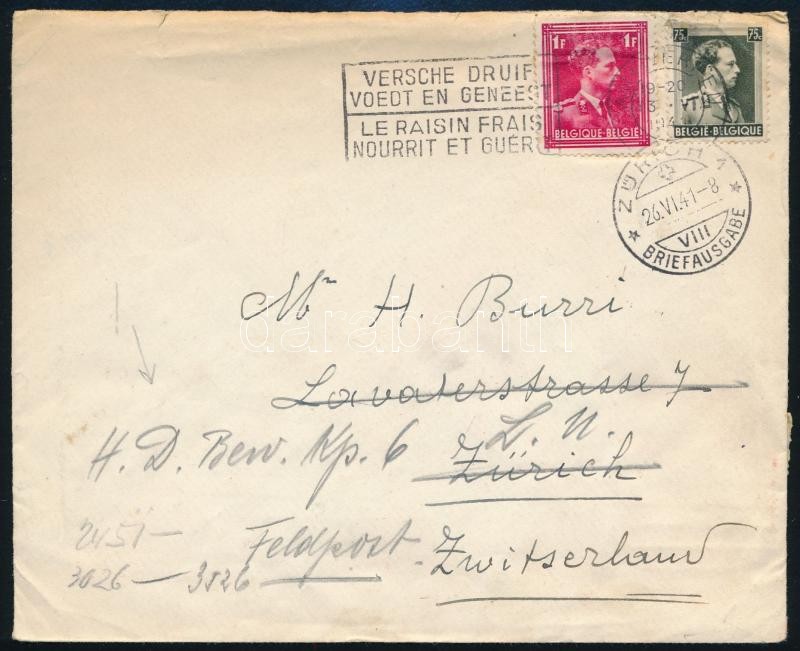 VERSCHE DRUIF
VOEDT EN GENEEST
LE RAISIN FRAIS
NOURRIT ET GUÉR
1F 1F
BELGIQUE-BELGIE
75c 75c
BELGIË-BELGIQUE
ZÜRICH 1
26.VI.41-8
VIII
BRIEFAUSGABE
Mr H. Burri
darabanth
Lavaterstrasse 7
H. D. Bew. Kp. 6 L. U.
Zürich
2451-
Feldpost. Zwitserland
3026 - 3526